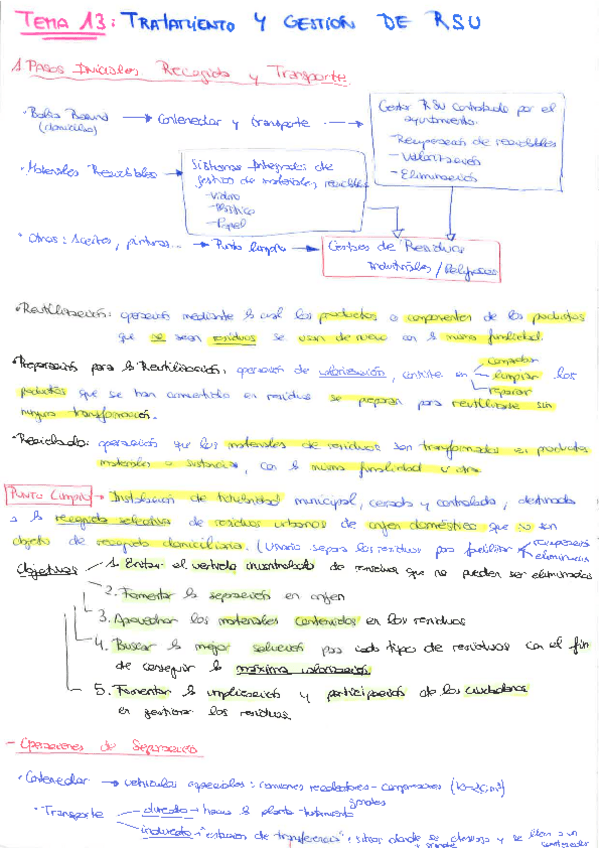 TEMA 13: TRATAMIENTO Y GESTIÓN DE RSU
1 PASOS INICIALES Recogida y Transporte
· Bolsa Basura → Contenedor y transporte →
(domicilio)
Gestor RSU controlado por el
ayuntamiento.
- Recuperación de reciclables
- Valorización
- Eliminación
· Materiales Reciclables →
Sistemas Integrales de
gestión de materiales reciclables
- Vidrio
- Plástico
- Papel
· Otros: Aceites, pinturas... → Punto limpio →
Centros de Residuos
Industriales / Peligrosos
· Reutilización: operación mediante la cual los productos o componentes de los productos
que no sean residuos se usan de nuevo con la misma finalidad.
· Preparación para la Reutilización: operación de valorización, consiste en comprobar limpiar reparar los
productos que se han convertido en residuos se preparan para reutilizarse sin
ninguna transformación.
· Reciclado: operación que los materiales de residuos son transformados en productos
materiales o sustancias, con la misma finalidad u otra
PUNTO LIMPIO → Instalación de titularidad municipal, cerrada y controlada, destinada
a la recogida selectiva de residuos urbanos de origen doméstico que no son
objeto de recogida domiciliaria. (Usuario separa los residuos para facilitar recuperación eliminación
Objetivos 1. Evitar el vertido incontrolado de residuos que no pueden ser eliminados
2. Fomentar la separación en origen
3. Aprovechar los materiales contenidos en los residuos
4. Buscar la mejor solución para cada tipo de residuos con el fin
de conseguir la máxima valorización
5. Fomentar la implicación y participación de los ciudadanos
en gestionar los residuos.
- Operaciones de Separación
· Contenedor → vehículos especiales: camiones recolectores - compresores
· Transporte directo → hacia la planta tratamiento
indirecto → "estaciones de transferencia": sitios donde se descarga y se llevan a un